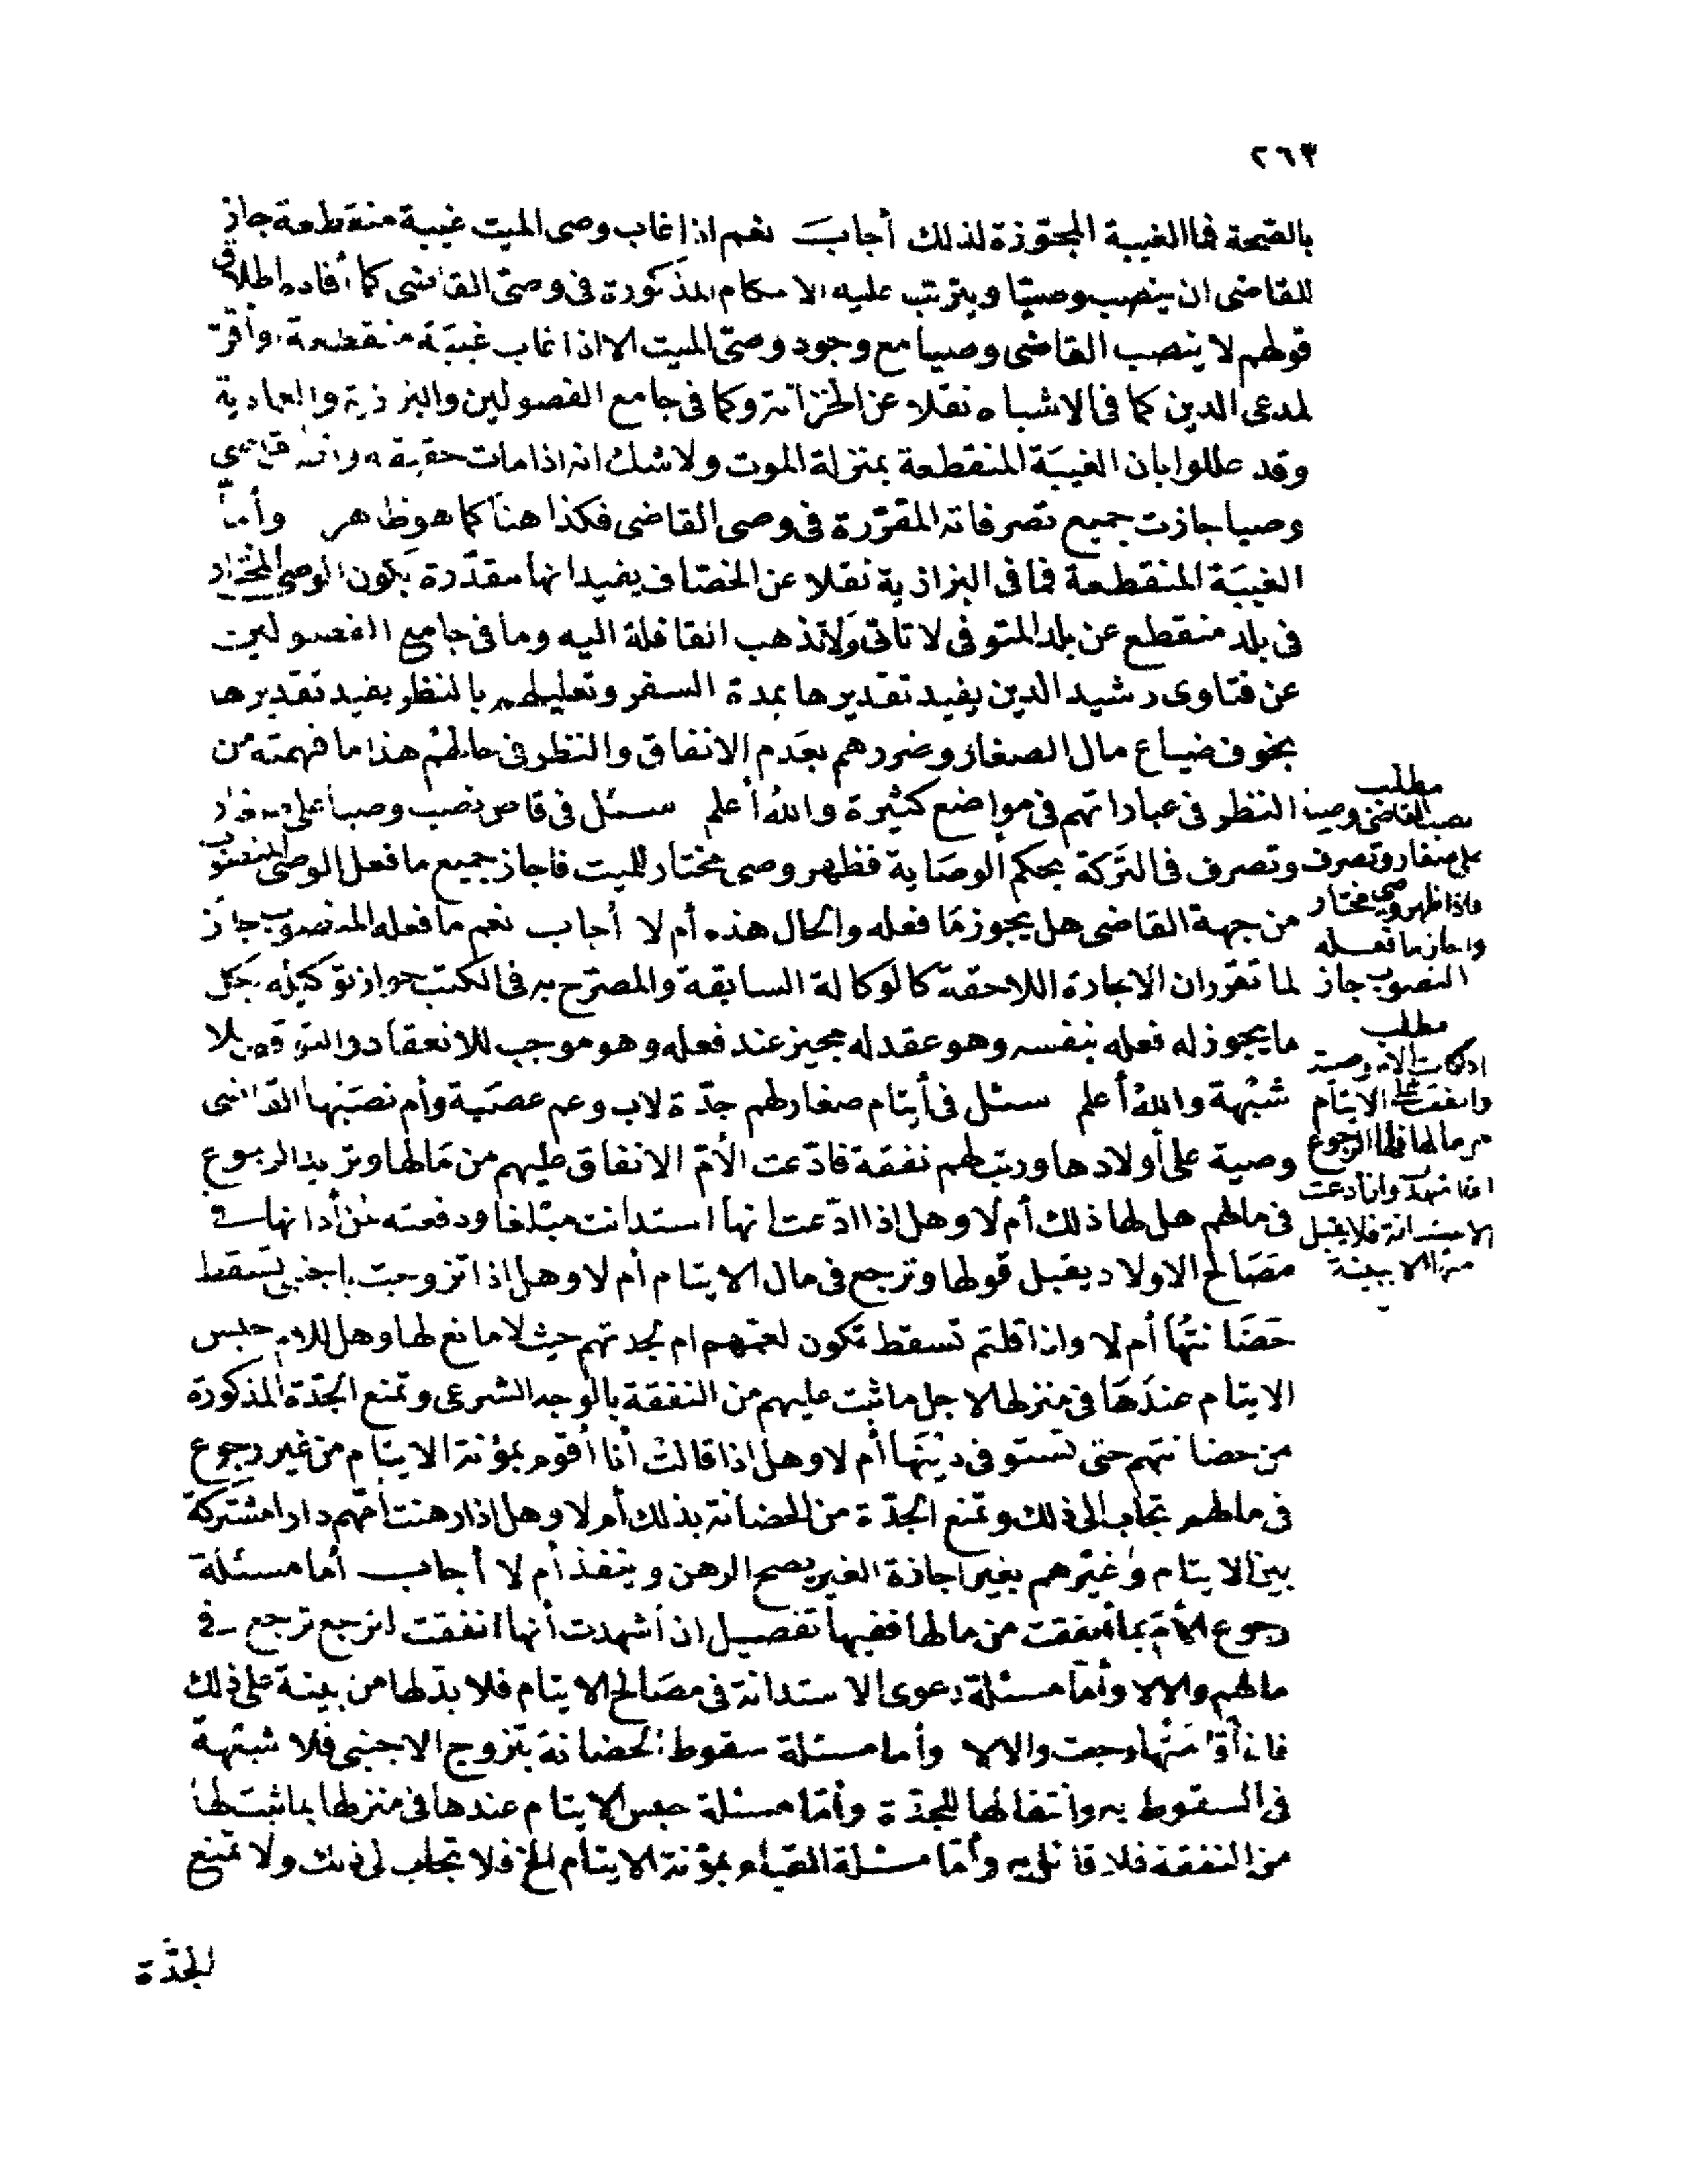 ٢٦٣
بالصحة فما الغيبة المجوزة لذلك أجابَ نعم اذا غاب وصى الميت غيبة منقطعة جاز
للقاضى ان ينصب وصيّا ويترتب عليه الاحكام المذكورة فى وصىّ القاضى كما أفاده اطلاق
قولهم لا ينصب القاضى وصيا مع وجود وصىّ الميت الا اذا غاب غيبَة منقطعة وأقرّ
لمدعى الدين كما فى الاشباه نقلا عن الخزانة وكما فى جامع الفصولين والبزازية والعمادية
وقد عللوا بان الغيبَة المنقطعة بمنزلة الموت ولا شك انه اذا مات حقيقة
وصيا جازت جميع تصرفاته المقرّرة فى وصى القاضى فكذا هنا كما هو ظاهر وأما
الغيبَة المنقطعة فما فى البزازية نقلا عن الخصّاف يفيد انها مقدّرة بكون الوصى المختار
فى بلد منقطع عن بلد المتوفى لا تاتى ولا تذهب القافلة اليه وما فى جامع الفصولين
عن فتاوى رشيد الدين يفيد تقديرها بمدة السفر وتعليلهم بالنظر يفيد تقديرها
بخوف ضياع مال الصغار وضررهم بعَدم الانفاق والنظر فى حالهم هذا ما فهمته من
النظر فى عباراتهم فى مواضع كثيرة واللهُ أعلم سئل فى قاض نصب وصيا على صغار
وتصرف فى التَركة بحكم الوصَاية فظهر وصى مختار للميت فاجاز جميع ما فعل الوصى المنصوب
من جهة القاضى هل يجوز مَا فعله والحال هذه أم لا أجاب نعم ما فعله المنصوب جائز
لما تقرر ان الاجازة اللاحقة كالوكالة السابقة والمصرّح به فى الكتب جواز توكيله بكل
ما يجوز له فعله بنفسه وهو عقد له مجيز عند فعله وهو موجب للانعقاد والتوقف بلا
شبْهة واللهُ أعلم سئل فى أيتام صغار لهم جدّة لاب وعم عصَبة وأم نصَبَها القاضى
وصية على أولادها ورتب لهم نفقة فادّعت الأمّ الانفاق عليهم من مَالها وتريد الرجوع
فى مالهم هل لها ذلك أم لا وهل اذا ادّعت انها استدانت مبْلغا ودفعته
مَصَالح الاولاد يقبل قولها وترجع فى مال الايتام أم لا وهل اذا تزوجت باجنبى تسقط
حَضَانتُها أم لا واذا قلتم تسقط تكون لعمّهم ام لجدتهم حيث لا مانع لها وهل للام حبس
الايتام عندَهَا فى منزلها لاجل ما ثبت عليهم من النفقة بالوجه الشرعى وتمنع الجَدّة المذكورة
من حضانتهم حتى تستوفى دينَها أم لا وهل اذا قالت أنا أقوم بمؤنة الايتام من غير رجوع
فى مالهم تجاب الى ذلك وتمنع الجَدّة من الحضانة بذلك أم لا وهل اذا رهنت أمّهم دارا مشتركة
بين الايتام وغيرهم بغير اجازة الغير يصح الرهن وينفذ أم لا أجاب أما مسئلة
رجوع الأمّ بما أنفقت من مالها ففيها تفصيل ان أشهدت أنها انفقت لترجع ترجع فى
مالهم والا لا وأمّا مسئلة دعوى الاستدانة فى مصَالح الايتام فلا بدّ لها من بينة على ذلك
فان أقامَتْها رجعت والا لا وأما مسئلة سقوط الحضانة بتزوج الاجنبى فلا شبْهة
فى السقوط به وانتقالها للجدّة وأمّا مسئلة حبس الايتام عندها فى منزلها بما ثبت لها
من النفقة فلا قائل به وأمّا مسئلة القيام بمؤنة الايتام الخ فلا تجاب لذلك ولا تمنع
مطلب
نصب القاضى وصيا
على صغار وتصرف
فاذا ظهر وصى مختار
واجاز ما فعله
المنصوب جاز
مطلب
اذ كانت الام وصية
وانفقت على الايتام
من مالها فلها الرجوع
اذا اشهدت وان ادعت
الاستدانة فلا يقبل
منها الا ببينة
الجَدّة